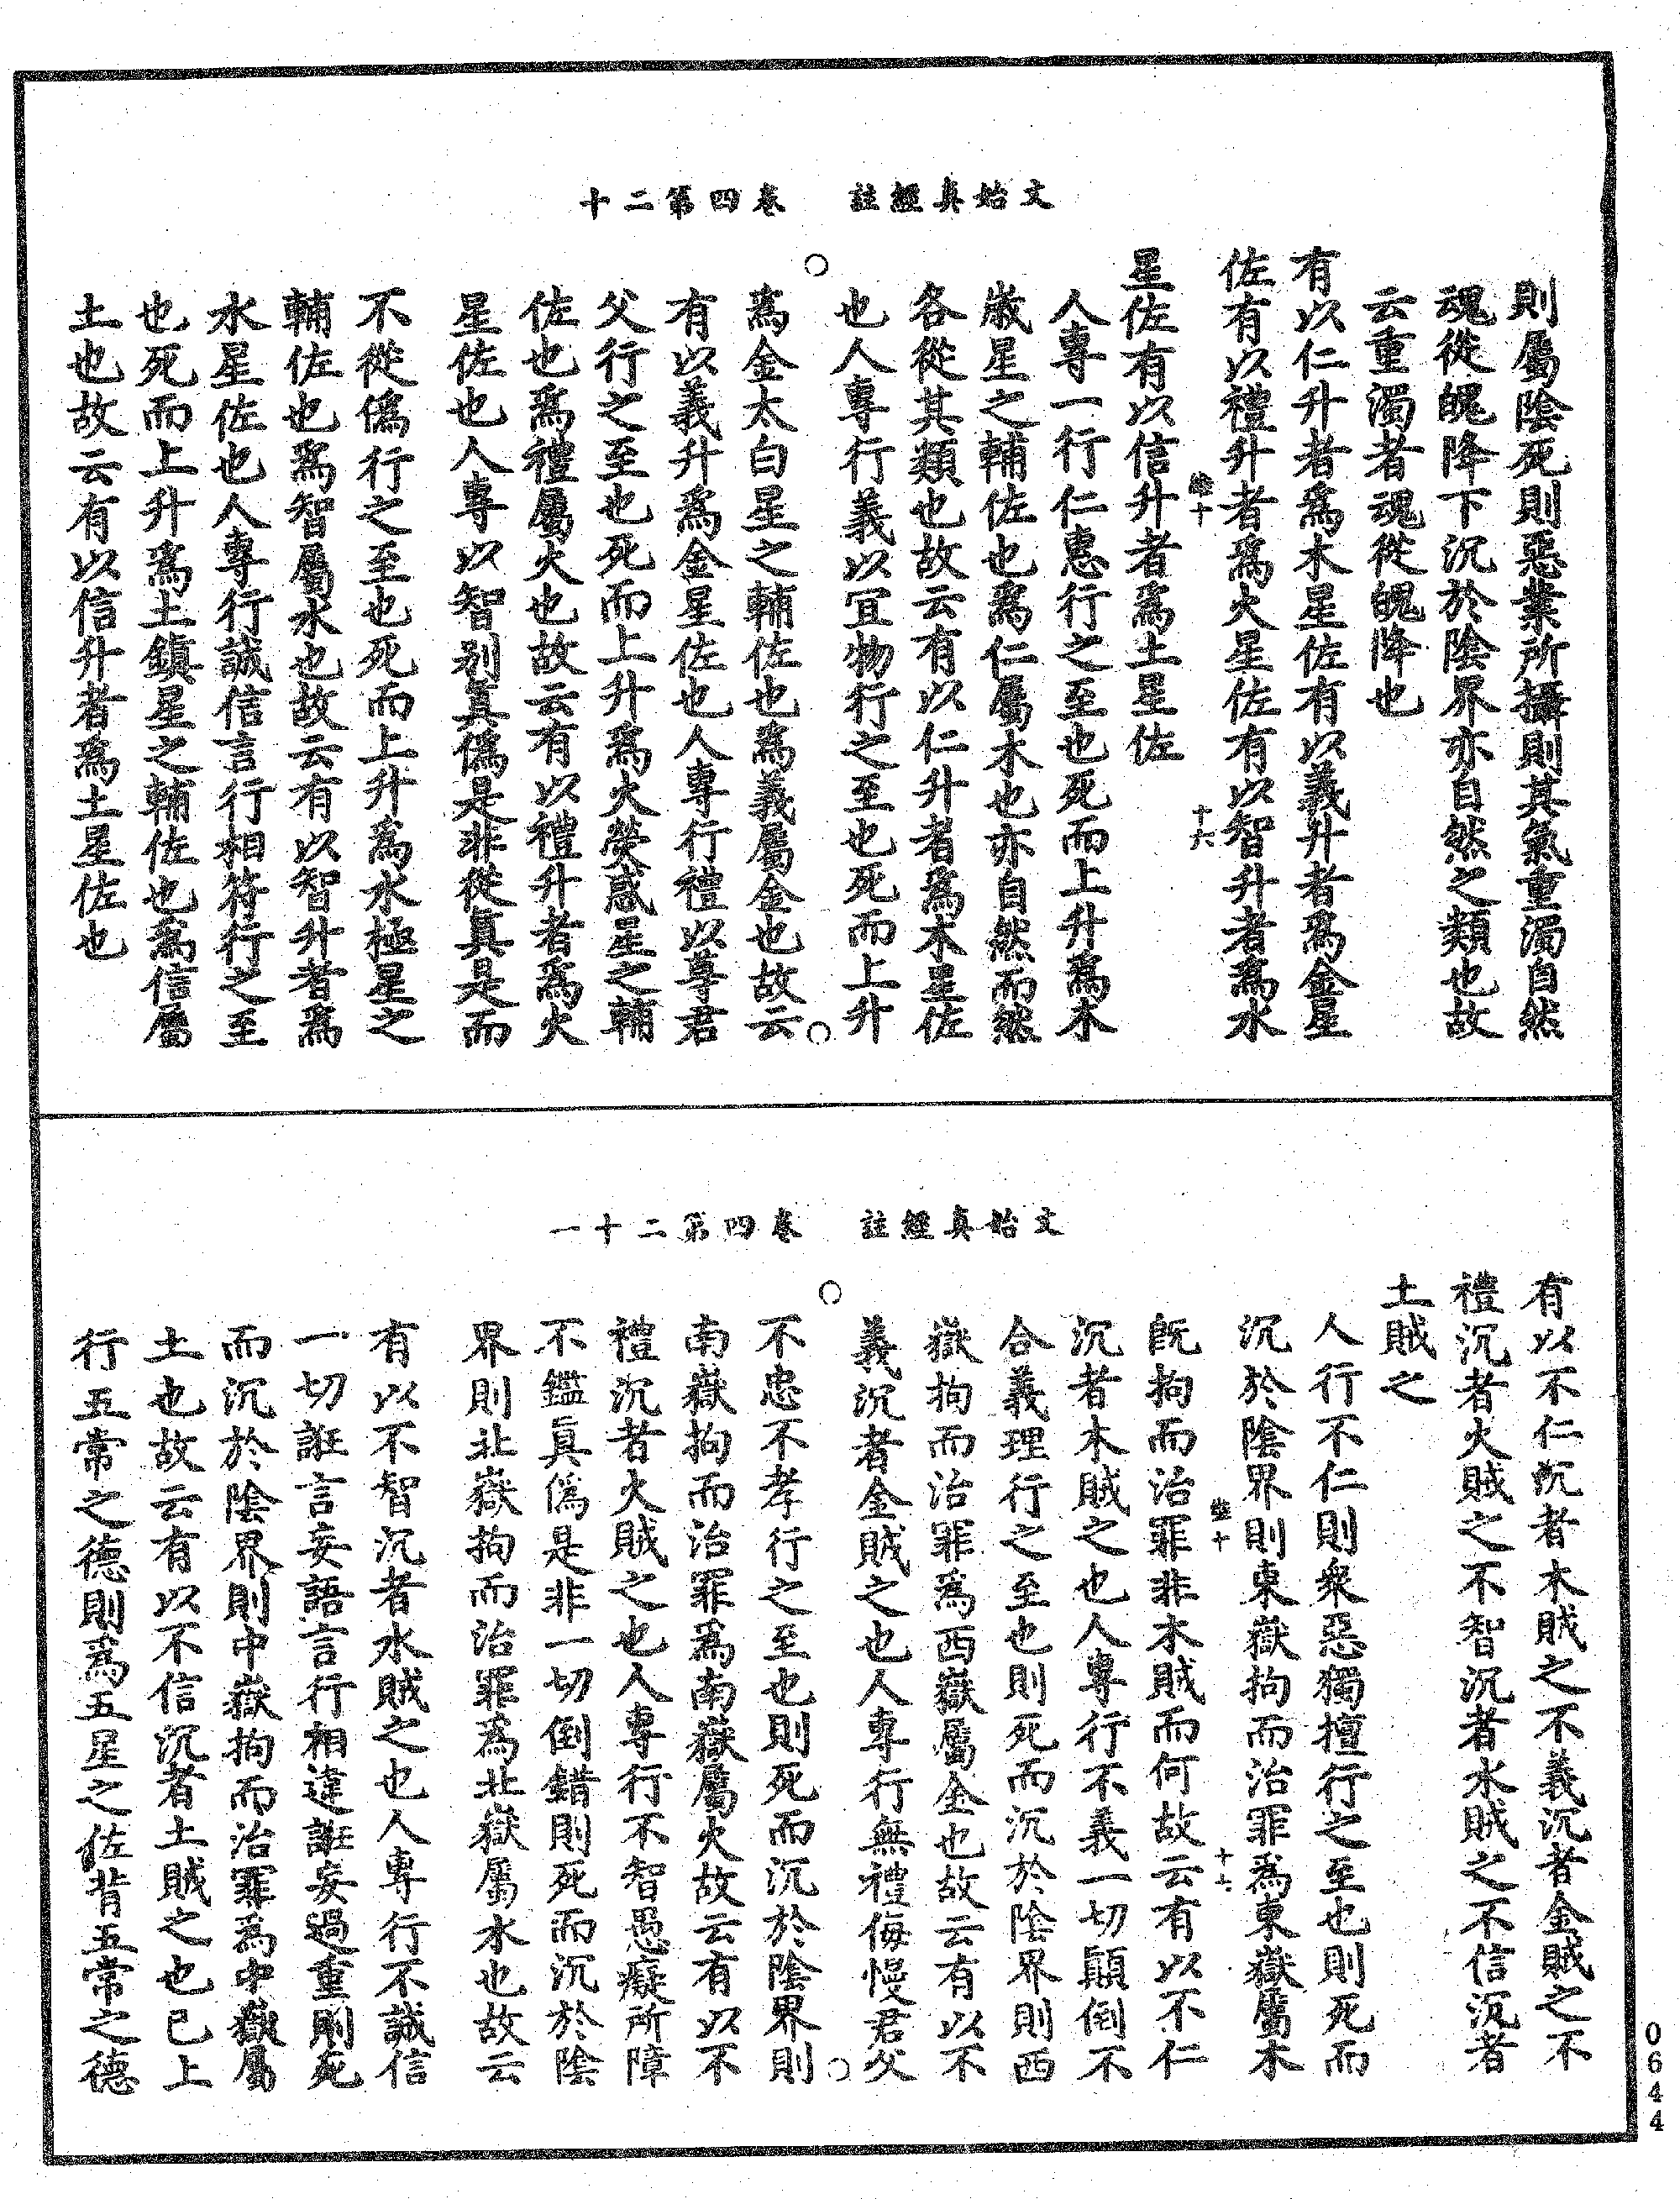 文始真經註　卷四第二十
則屬陰死則惡業所攝則其氣重濁自然
魂從魄降下沉於陰界亦自然之類也故
云重濁者魂從魄降也
有以仁升者為木星佐有以義升者為金星
佐有以禮升者為火星佐有以智升者為水
十六
星佐有以信升者為土星佐
人專一行仁惠行之至也死而上升為木
歲星之輔佐也為仁屬木也亦自然而然
各從其類也故云有以仁升者為木星佐
也人專行義以冝物行之至也死而上升
為金太白星之輔佐也為義屬金也故云
有以義升為金星佐也人專行禮以尊君
父行之至也死而上升為火熒惑星之輔
佐也為禮屬火也故云有以禮升者為火
星佐也人專以智别真偽是非從真是而
不從偽行之至也死而上升為水極星之
輔佐也為智屬水也故云有以智升者為
水星佐也人專行誠信言行相符行之至
也死而上升為土鎮星之輔佐也為信屬
土也故云有以信升者為土星佐也
文始真經註　卷四第二十一
有以不仁沉者木賊之不義沉者金賊之不
禮沉者火賊之不智沉者水賊之不信沉者
土賊之
人行不仁則衆惡獨擅行之至也則死而
沉於陰界則東嶽拘而治罪為東嶽屬木
十七
既拘而治罪非木賊而何故云有以不仁
沉者木賊之也人專行不義一切顛倒不
合義理行之至也則死而沉於陰界則西
嶽拘而治罪為西嶽屬金也故云有以不
義沉者金賊之也人專行無禮侮慢君父
不忠不孝行之至也則死而沉於陰界則
南嶽拘而治罪為南嶽屬火故云有以不
禮沉者火賊之也人專行不智愚癡所障
不鑑真偽是非一切倒錯則死而沉於陰
界則北嶽拘而治罪為北嶽屬水也故云
有以不智沉者水賊之也人專行不誠信
一切誑言妄語言行相違誑妄過重則死
而沉於陰界則中嶽拘而治罪為中嶽屬
土也故云有以不信沉者土賊之也已上
行五常之德則為五星之佐背五常之德
0644